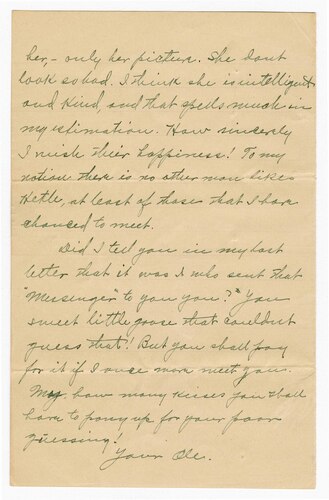 her, - only her picture. She dont
look so bad. I think she is intelligent
and kind, and that spells much in
my estimation. How sincerely
I wish their happiness! To my
notion there is no other man like
Hetle, at least of those that I have
chanced to meet.
Did I tell you in my last
letter that it was I who sent that
"Messenger" to you you?" You
sweet little goose that couldn't
guess that! But you shall pay
for it if I once more meet you.
My, how many kisses you shall
have to pony up for your poor
guessing!
Your Ole.